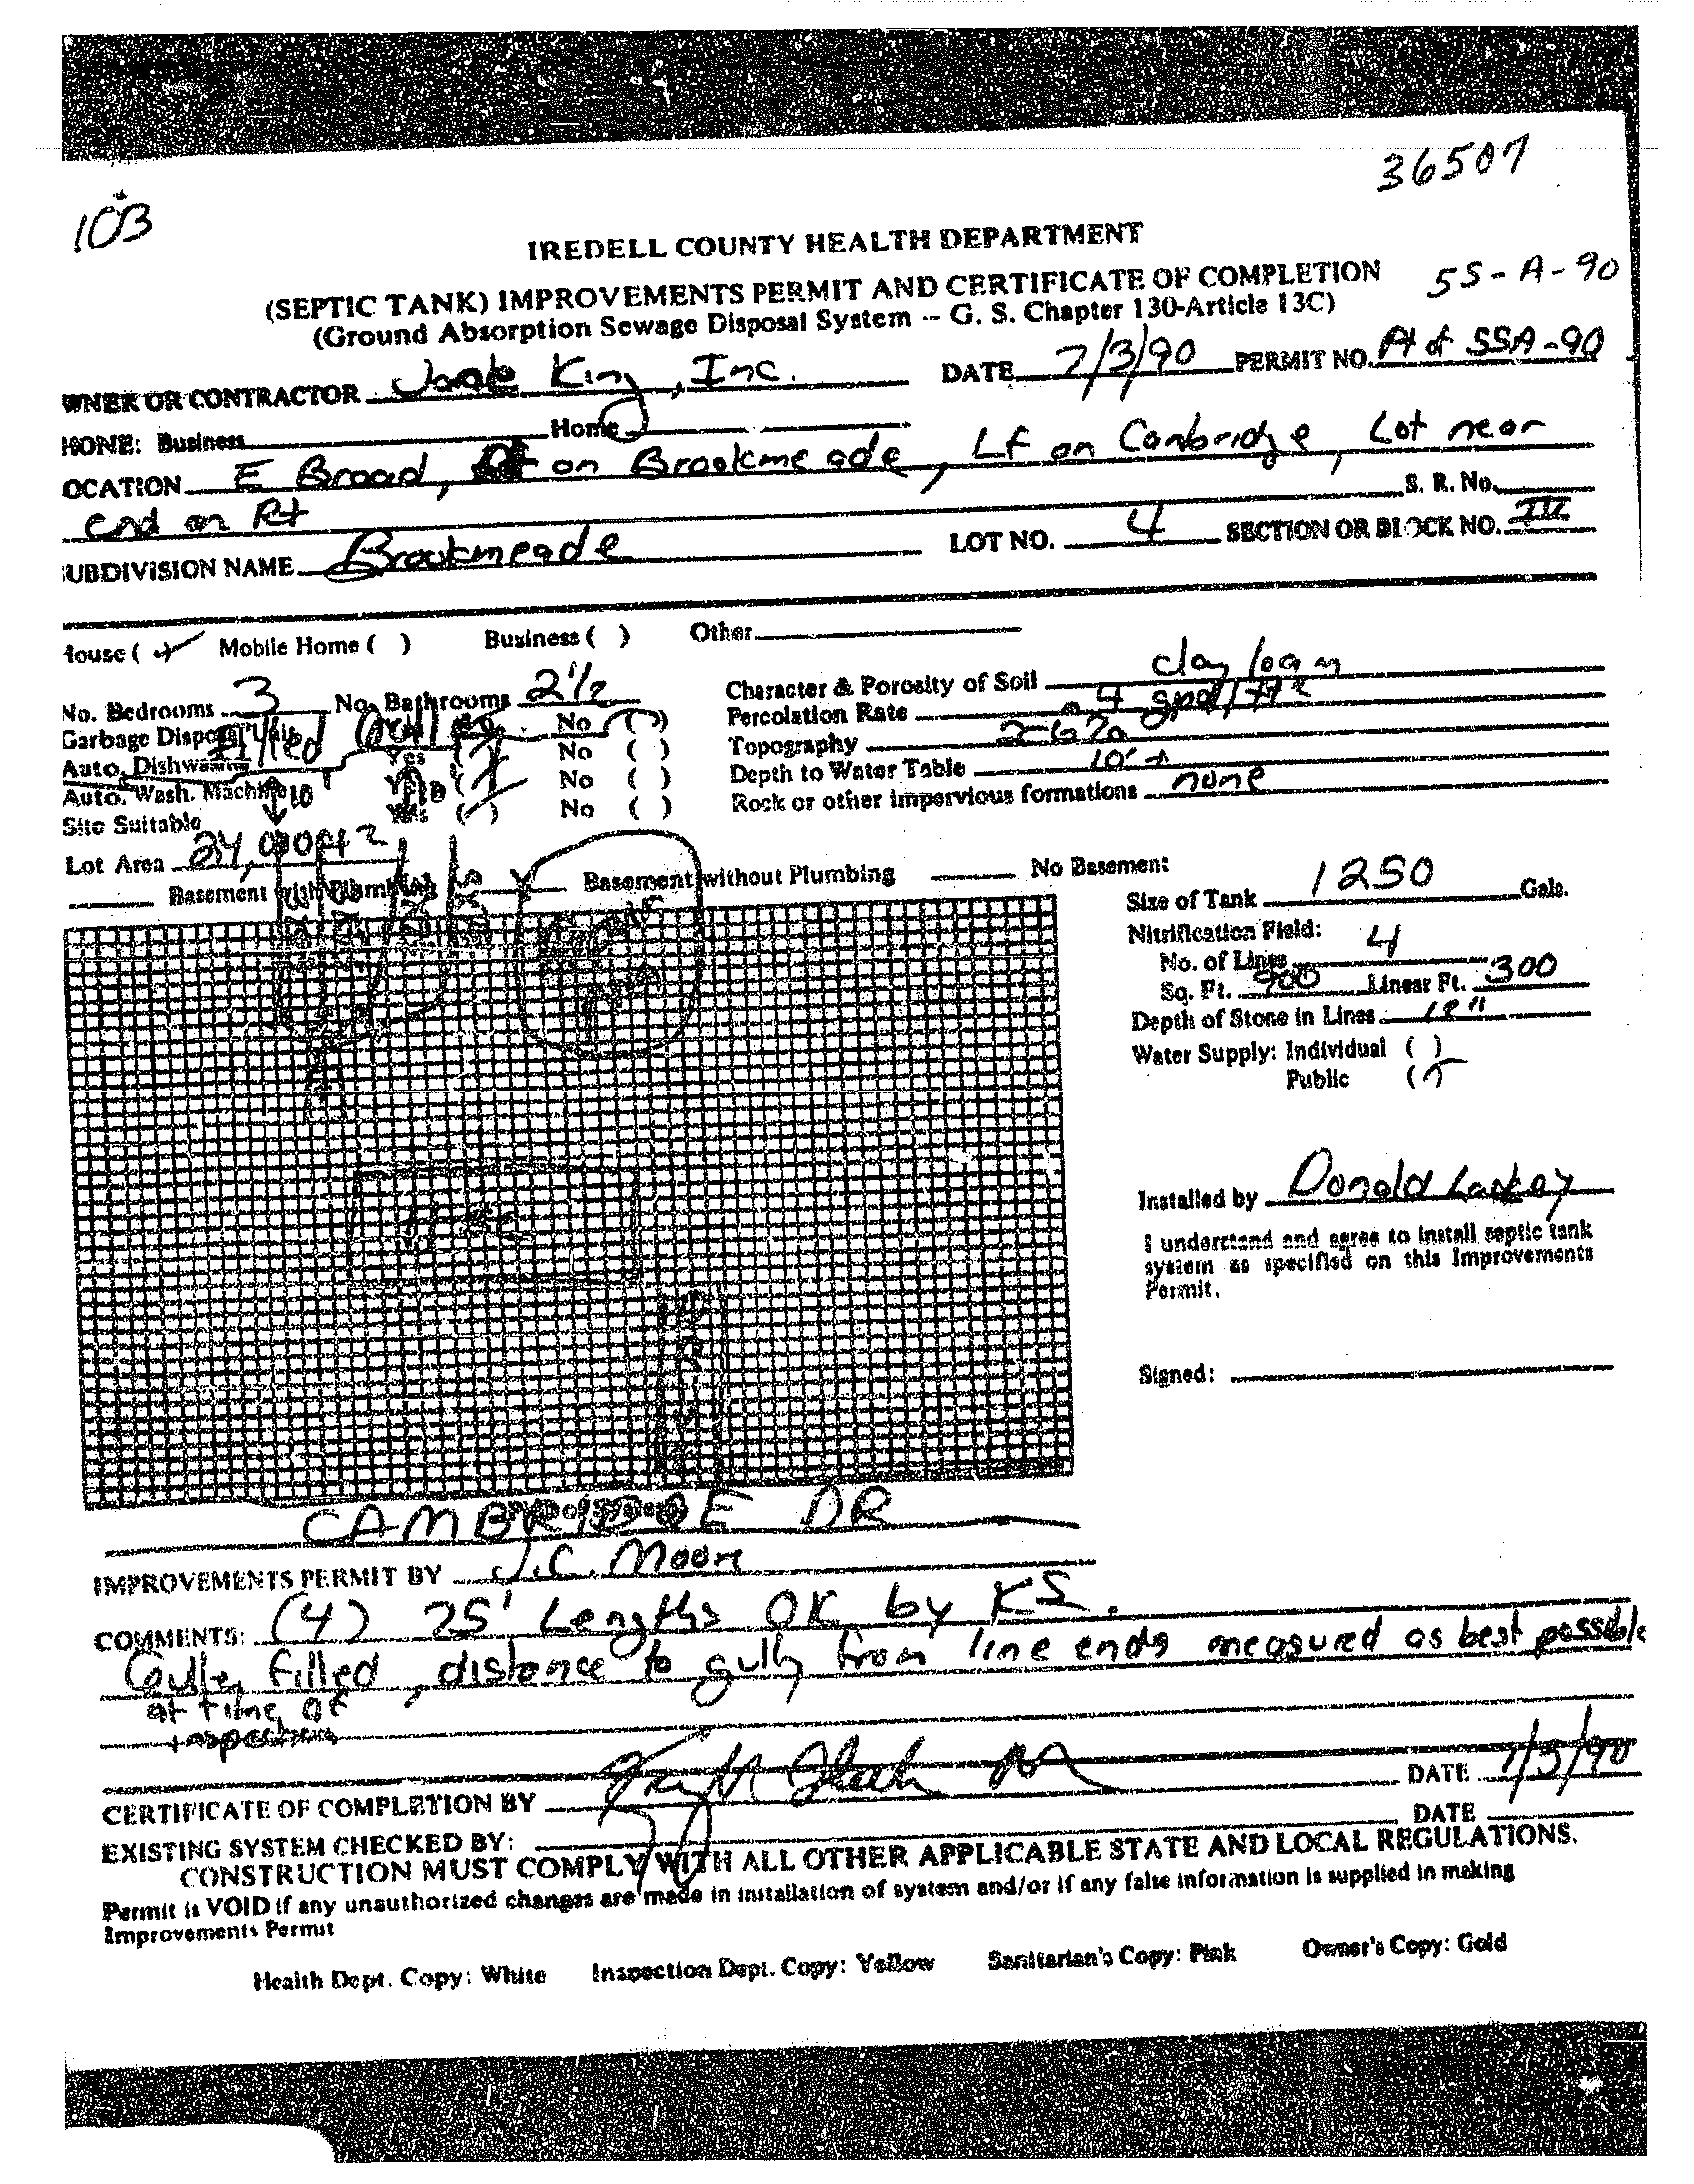 36507
103
IREDELL COUNTY HEALTH DEPARTMENT
(SEPTIC TANK) IMPROVEMENTS PERMIT AND CERTIFICATE OF COMPLETION 55-A-90
(Ground Absorption Sewage Disposal System -- G. S. Chapter 130-Article 13C)
WNER OR CONTRACTOR King, Inc. DATE 7/3/90 PERMIT NO. SSA-90
HONE: Business Home
OCATION E Broad, on Brookmeade, Lf on Cambridge, Lot near
end on Rt S. R. No.
UBDIVISION NAME Brookmeade LOT NO. 4 SECTION OR BLOCK NO. III
House ( ) Mobile Home ( ) Business ( ) Other
No. Bedrooms 3 No. Bathrooms 2 1/2 Character & Porosity of Soil clay loam
Garbage Disposal Unit No ( ) Percolation Rate .4 gpd/ft²
Auto. Dishwasher Yes ( ) No ( ) Topography 2-6%
Auto. Wash. Machine Yes ( ) No ( ) Depth to Water Table 10'+
Site Suitable Yes ( ) No ( ) Rock or other impervious formations none
Filled Gully
Lot Area 24,000 ft²
Basement with Plumbing Basement without Plumbing No Basement
Size of Tank 1250 Gals.
Nitrification Field:
No. of Lines 4
Sq. Ft. 900 Linear Ft. 300
Depth of Stone in Lines 18"
Water Supply: Individual ( )
Public ( )
Installed by Donald Lackey
I understand and agree to install septic tank
system as specified on this Improvements
Permit.
Signed:
CAMBRIDGE DR
IMPROVEMENTS PERMIT BY J.C. Moore
COMMENTS: (4) 75' Lengths OK by KS.
Gully filled, distance to gully from line ends measured as best possible
at time of
inspection
CERTIFICATE OF COMPLETION BY DATE 7/3/90
EXISTING SYSTEM CHECKED BY: DATE
CONSTRUCTION MUST COMPLY WITH ALL OTHER APPLICABLE STATE AND LOCAL REGULATIONS.
Permit is VOID if any unauthorized changes are made in installation of system and/or if any false information is supplied in making
Improvements Permit
Health Dept. Copy: White Inspection Dept. Copy: Yellow Sanitarian's Copy: Pink Owner's Copy: Gold